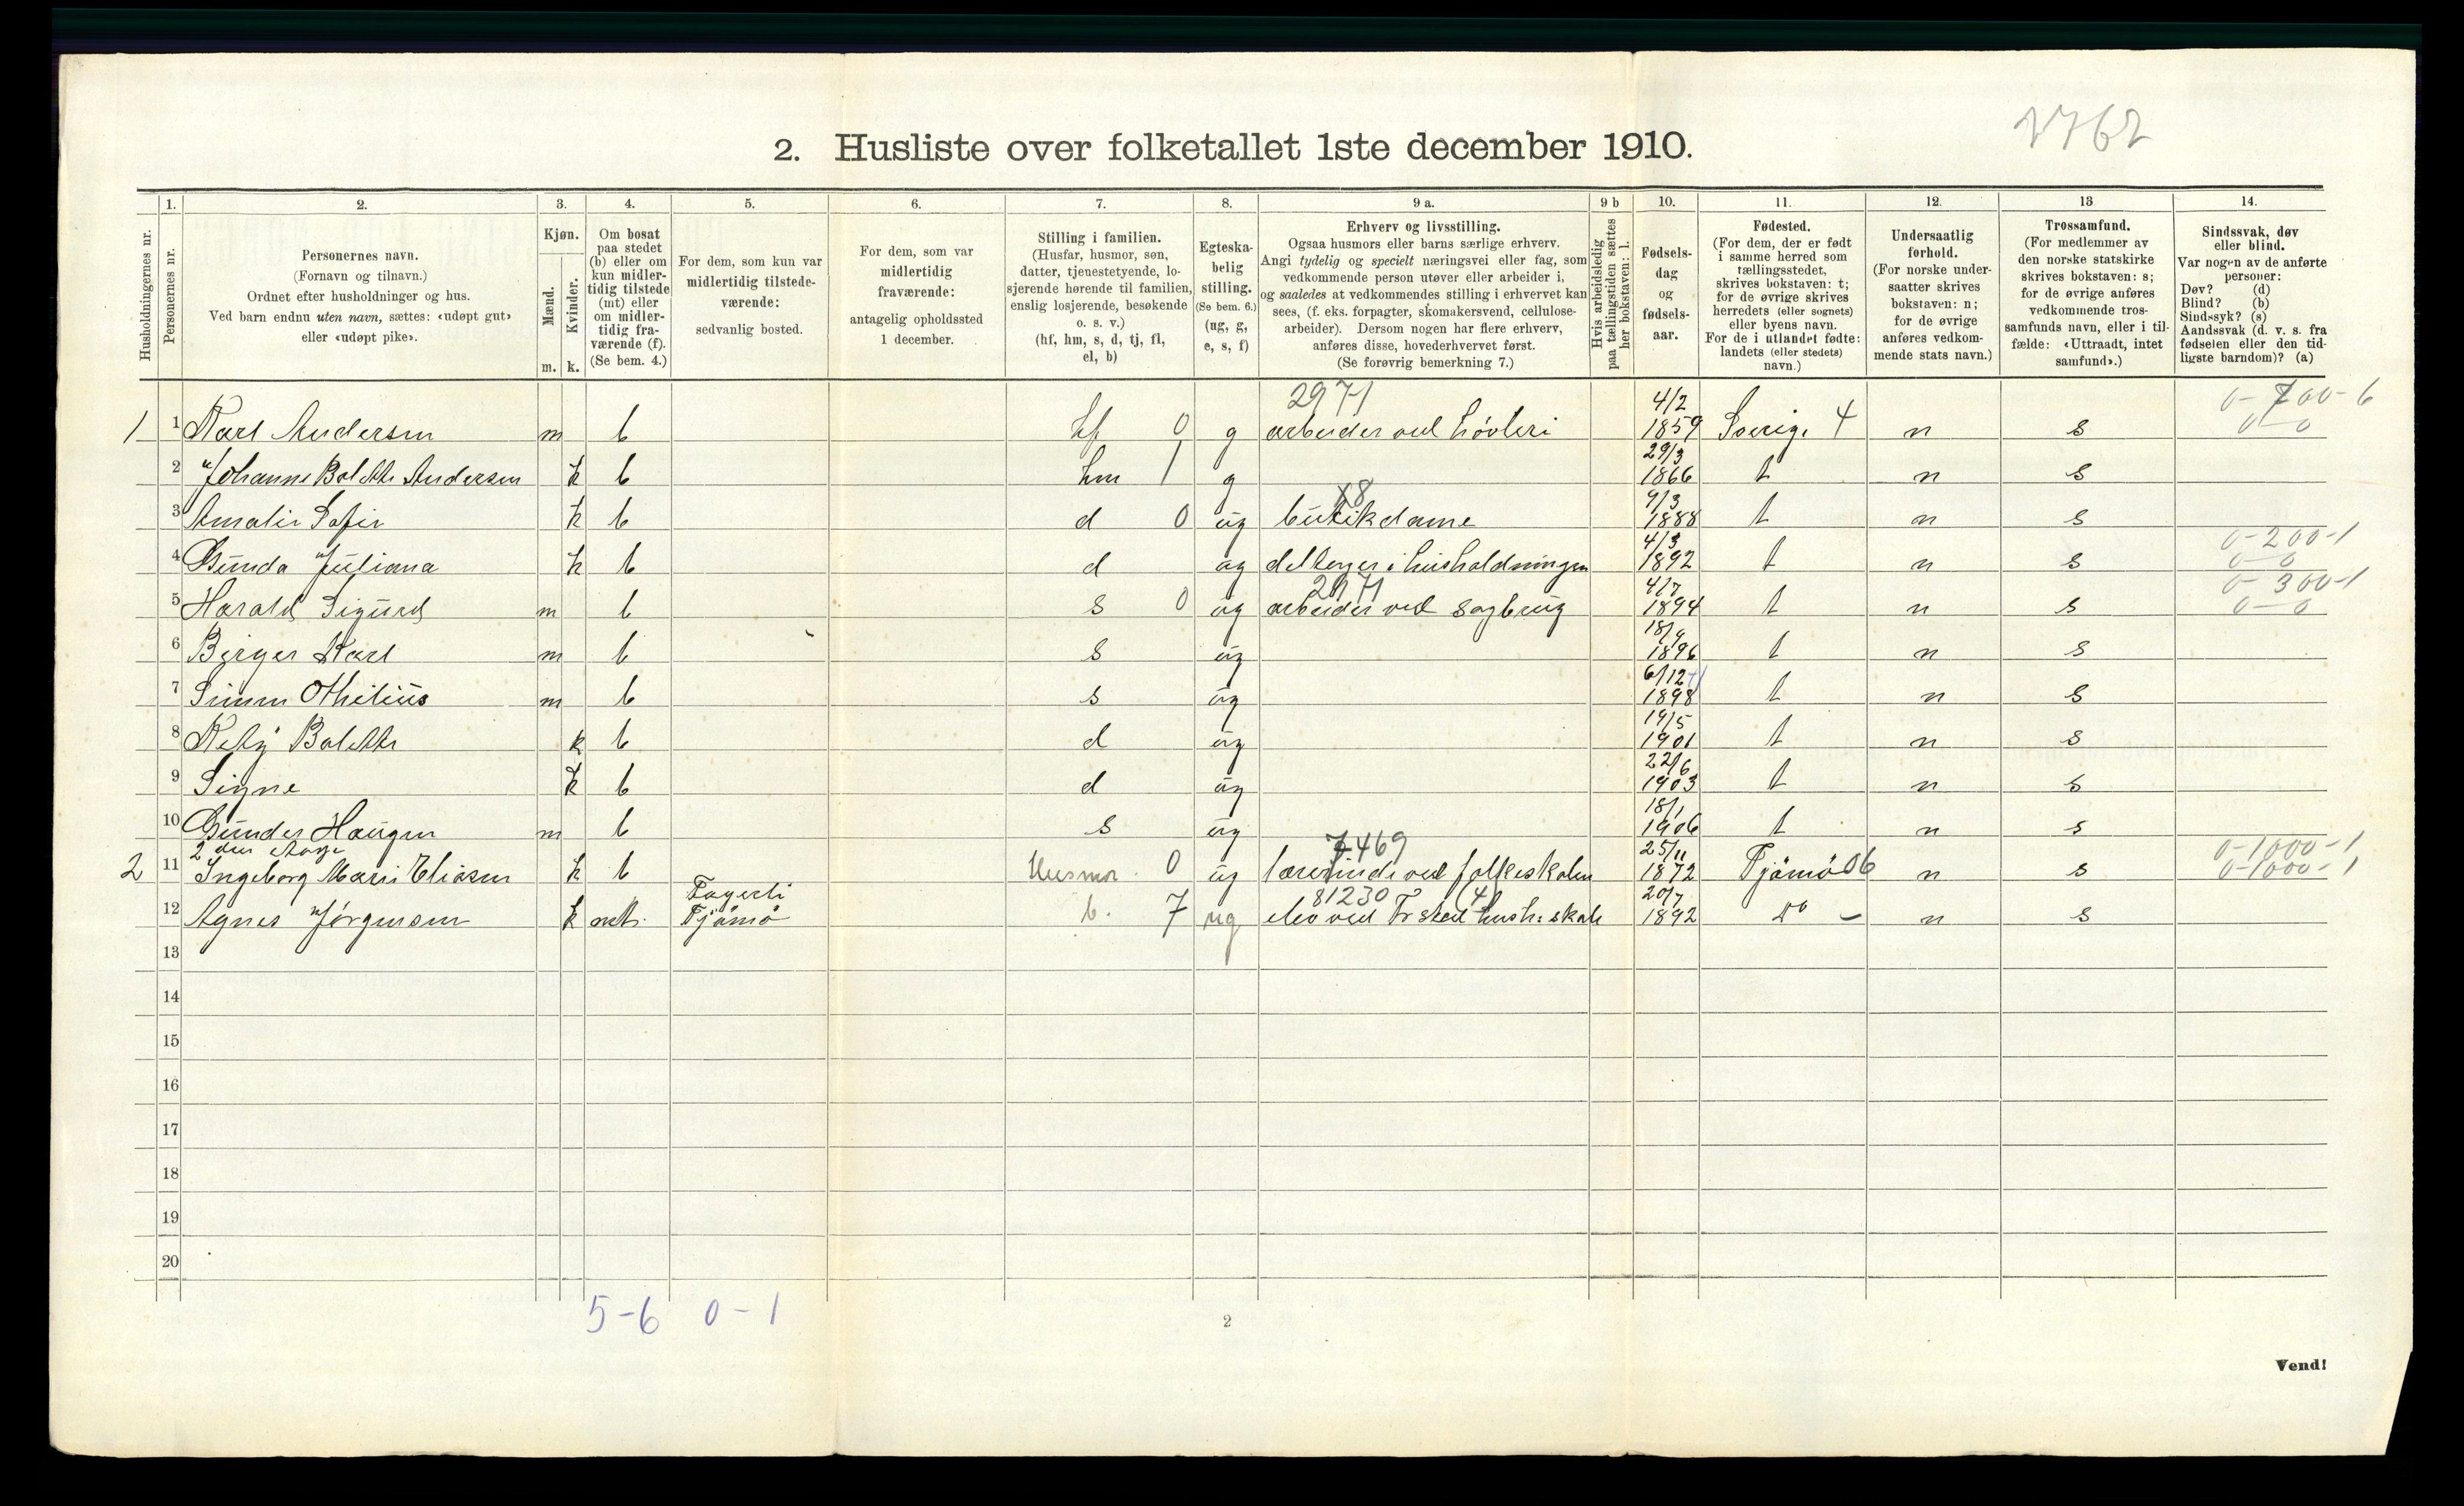 2762
2. Husliste over folketallet 1ste december 1910.
Husholdningernes nr.
1.
Personernes nr.
2.
Personernes navn.
(Fornavn og tilnavn.)
Ordnet efter husholdninger og hus.
Ved barn endnu uten navn, sættes: «udøpt gut»
eller «udøpt pike».
3.
Kjøn.
Mænd.
Kvinder.
m. k.
4.
Om bosat
paa stedet
(b) eller om
kun midler-
tidig tilstede
(mt) eller
om midler-
tidig fra-
værende (f).
(Se bem. 4.)
5.
For dem, som kun var
midlertidig tilstede-
værende:
sedvanlig bosted.
6.
For dem, som var
midlertidig
fraværende:
antagelig opholdssted
1 december.
7.
Stilling i familien.
(Husfar, husmor, søn,
datter, tjenestetyende, lo-
sjerende hørende til familien,
enslig losjerende, besøkende
o. s. v.)
(hf, hm, s, d, tj, fl,
el, b)
8.
Egteska-
belig
stilling.
(Se bem. 6.)
(ug, g,
e, s, f)
9 a.
Erhverv og livsstilling.
Ogsaa husmors eller barns særlige erhverv.
Angi tydelig og specielt næringsvei eller fag, som
vedkommende person utøver eller arbeider i,
og saaledes at vedkommendes stilling i erhvervet kan
sees, (f. eks. forpagter, skomakersvend, cellulose-
arbeider). Dersom nogen har flere erhverv,
anføres disse, hovederhvervet først.
(Se forøvrig bemerkning 7.)
9 b
Hvis arbeidsledig
paa tællingstiden sættes
her bokstaven: l.
10.
Fødsels-
dag
og
fødsels-
aar.
11.
Fødested.
(For dem, der er født
i samme herred som
tællingsstedet,
skrives bokstaven: t;
for de øvrige skrives
herredets (eller sognets)
eller byens navn.
For de i utlandet fødte:
landets (eller stedets)
navn.)
12.
Undersaatlig
forhold.
(For norske under-
saatter skrives
bokstaven: n;
for de øvrige
anføres vedkom-
mende stats navn.)
13
Trossamfund.
(For medlemmer av
den norske statskirke
skrives bokstaven: s;
for de øvrige anføres
vedkommende tros-
samfunds navn, eller i til-
fælde: «Uttraadt, intet
samfund».)
14.
Sindssvak, døv
eller blind.
Var nogen av de anførte
personer:
Døv? (d)
Blind? (b)
Sindssyk? (s)
Aandssvak (d. v. s. fra
fødselen eller den tid-
ligste barndom)? (a)
2971 4/2 0-700-6
1 1 Karl Andersen m b hf 0 g arbeider ved høvleri 1859 Sverige 4 n s 0-0
29/3
2 Johanne Bolette Andersen k b hm 1 g 1866 t n s
9/3
3 Amalie Sofie k b d 0 ug butikdame 1888 t n s
4/3 0-200-1
4 Gunda Juliana k b d ug deltager i husholdningen 1892 t n s 0-0
2971 4/7 0-300-1
5 Harald Sigurd m b s 0 ug arbeider ved sagbrug 1894 t n s 0-0
18/9
6 Birger Karl m b s ug 1896 t n s
6/12
7 Simen Othilius m b s ug 1898 t n s
19/5
8 Kety Bolette k b d ug 1901 t n s
22/6
9 Signe k b d ug 1903 t n s
18/1
10 Gunder Haugen m b s ug 1906 t n s
2den etage 7469 25/11 0-1000-1
2 11 Ingeborg Marie Eliasen k b Husmor 0 ug lærerinde ved folkeskolen 1872 Tjømø 06 n s 0-1000-1
Fagerli 81230 (4) 20/7
12 Agnes Jørgensen k mt. Tjømø b. 7 ug elev ved Fr.stad hush. skole 1892 do - n s
13
14
15
16
17
18
19
20
5-6 0-1
2
Vend!